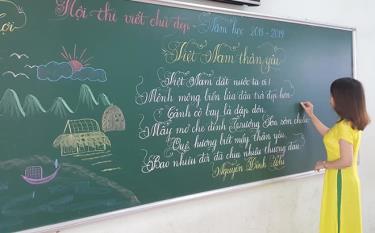 Hội thi viết chữ đẹp - Năm học 2018 - 2019
Việt Nam thân yêu
Việt Nam đất nước ta ơi!
Mênh mông biển lúa đâu trời đẹp hơn
Cánh cò bay lả dập dờn,
Mây mờ che đỉnh Trường Sơn sớm chiều
Quê hương biết mấy thân yêu,
Bao nhiêu đời đã chịu nhiều thương đau
Nguyễn Đình Thi